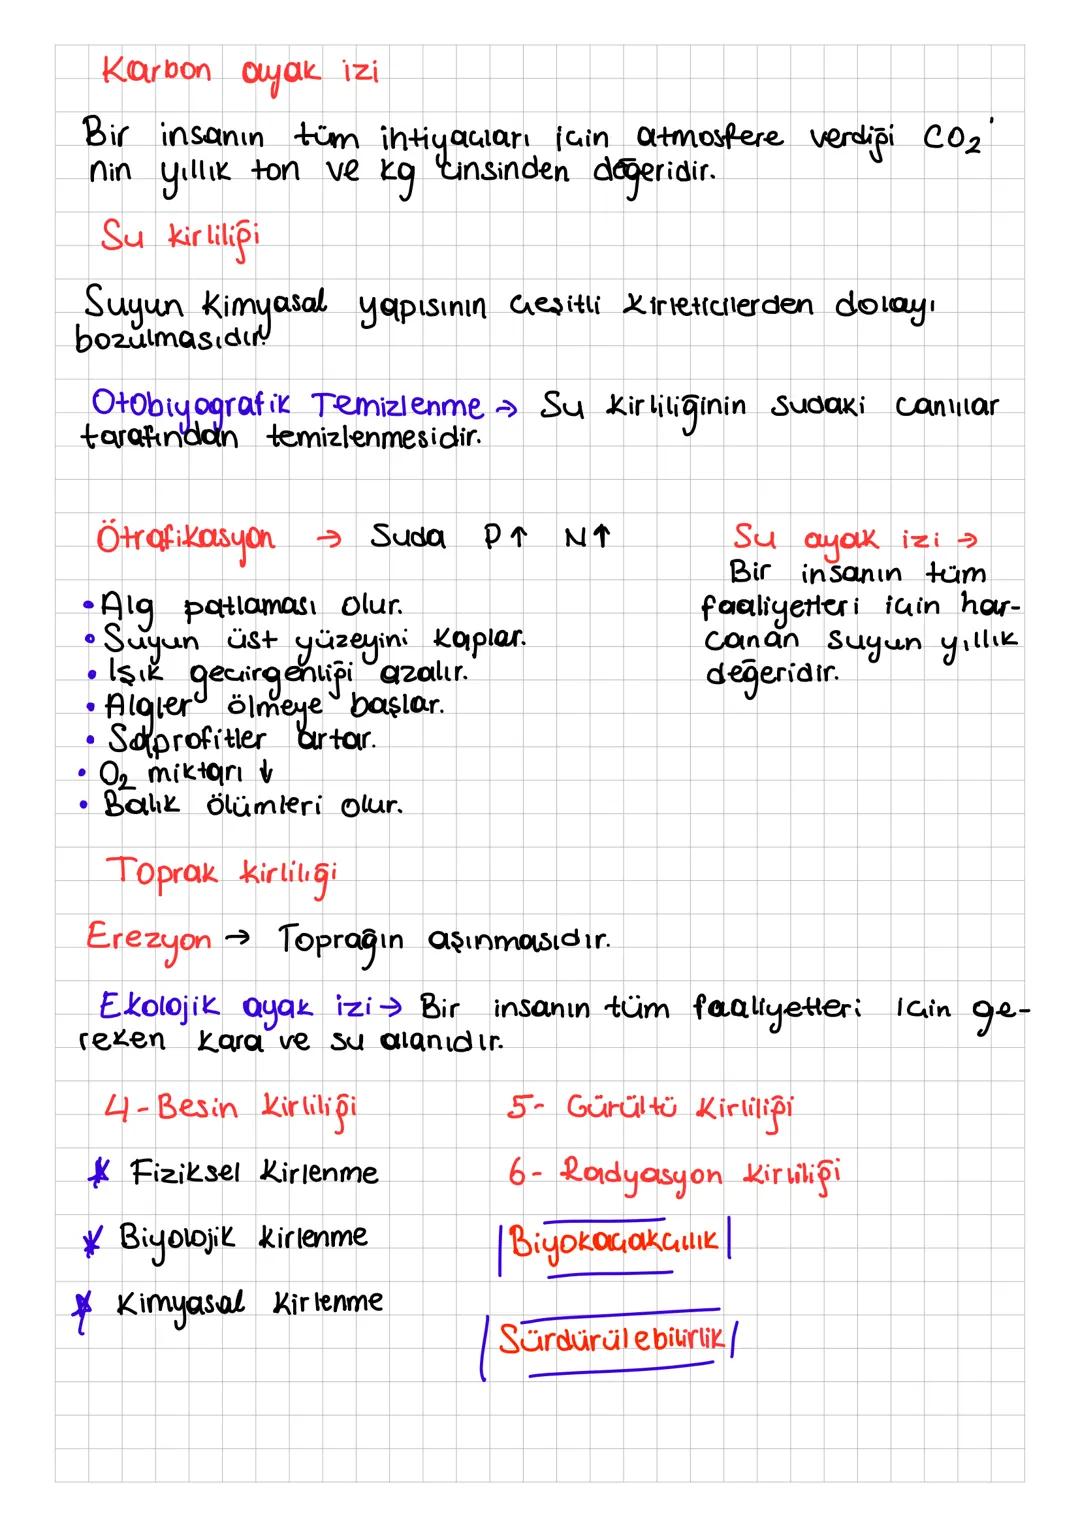 Karbon ayak izi
Bir insanın tüm ihtiyaçları için atmosfere verdiği CO₂'
nin yıllık ton ve kg cinsinden değeridir.
Su kirliliği
Suyun kimyasal yapısının çeşitli kirleticilerden dolayı
bozulmasıdır.
Otobiyografik Temizlenme → Su kirliliğinin sudaki canlılar
tarafından temizlenmesidir.
Ötrafikasyon → Suda P↑ N↑
• Alg patlaması olur.
• Suyun üst yüzeyini kaplar.
• Işık geçirgenliği azalır.
• Algler ölmeye başlar.
• Saprofitler artar.
• O₂ miktarı ↓
• Balık ölümleri olur.
Su ayak izi →
Bir insanın tüm
faaliyetleri için har-
canan suyun yıllık
değeridir.
Toprak kirliliği
Erezyon → Toprağın aşınmasıdır.
Ekolojik ayak izi → Bir insanın tüm faaliyetleri için ge-
reken kara ve su alanıdır.
4- Besin kirliliği
* Fiziksel Kirlenme
* Biyolojik kirlenme
* Kimyasal Kirlenme
5- Gürültü Kirliliği
6- Radyasyon kirliliği
Biyokaçakçılık
Sürdürülebilirlik